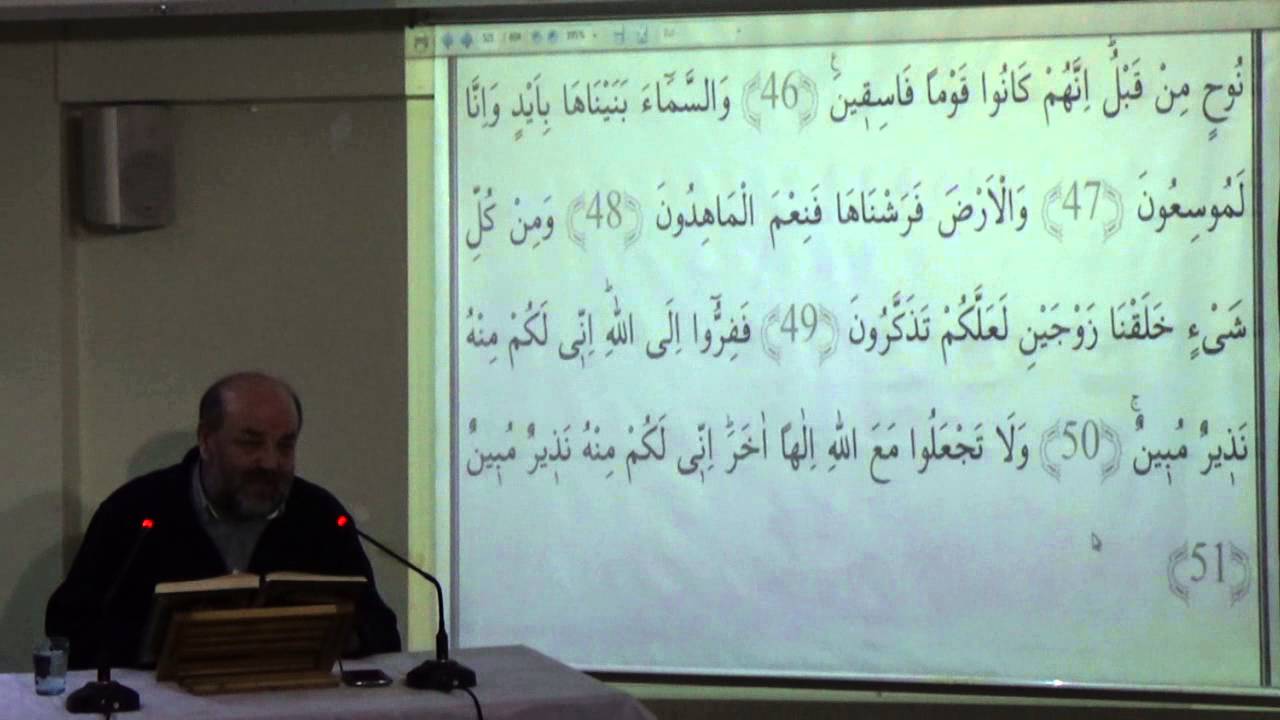 521 / 604 395%
نُوحٍ مِنْ قَبْلُۜ اِنَّهُمْ كَانُوا قَوْمًا فَاسِقٖينَۚ ﴿46﴾ وَالسَّمَٓاءَ بَنَيْنَاهَا بِاَيْدٍ وَاِنَّا
لَمُوسِعُونَ ﴿47﴾ وَالْاَرْضَ فَرَشْنَاهَا فَنِعْمَ الْمَاهِدُونَ ﴿48﴾ وَمِنْ كُلِّ
شَیْءٍ خَلَقْنَا زَوْجَيْنِ لَعَلَّكُمْ تَذَكَّرُونَ ﴿49﴾ فَفِرُّٓوا اِلَى اللّٰهِۜ اِنّٖى لَكُمْ مِنْهُ
نَذٖيرٌ مُبٖينٌۚ ﴿50﴾ وَلَا تَجْعَلُوا مَعَ اللّٰهِ اِلٰهًا اٰخَرَۜ اِنّٖى لَكُمْ مِنْهُ نَذٖيرٌ مُبٖينٌ
﴿51﴾